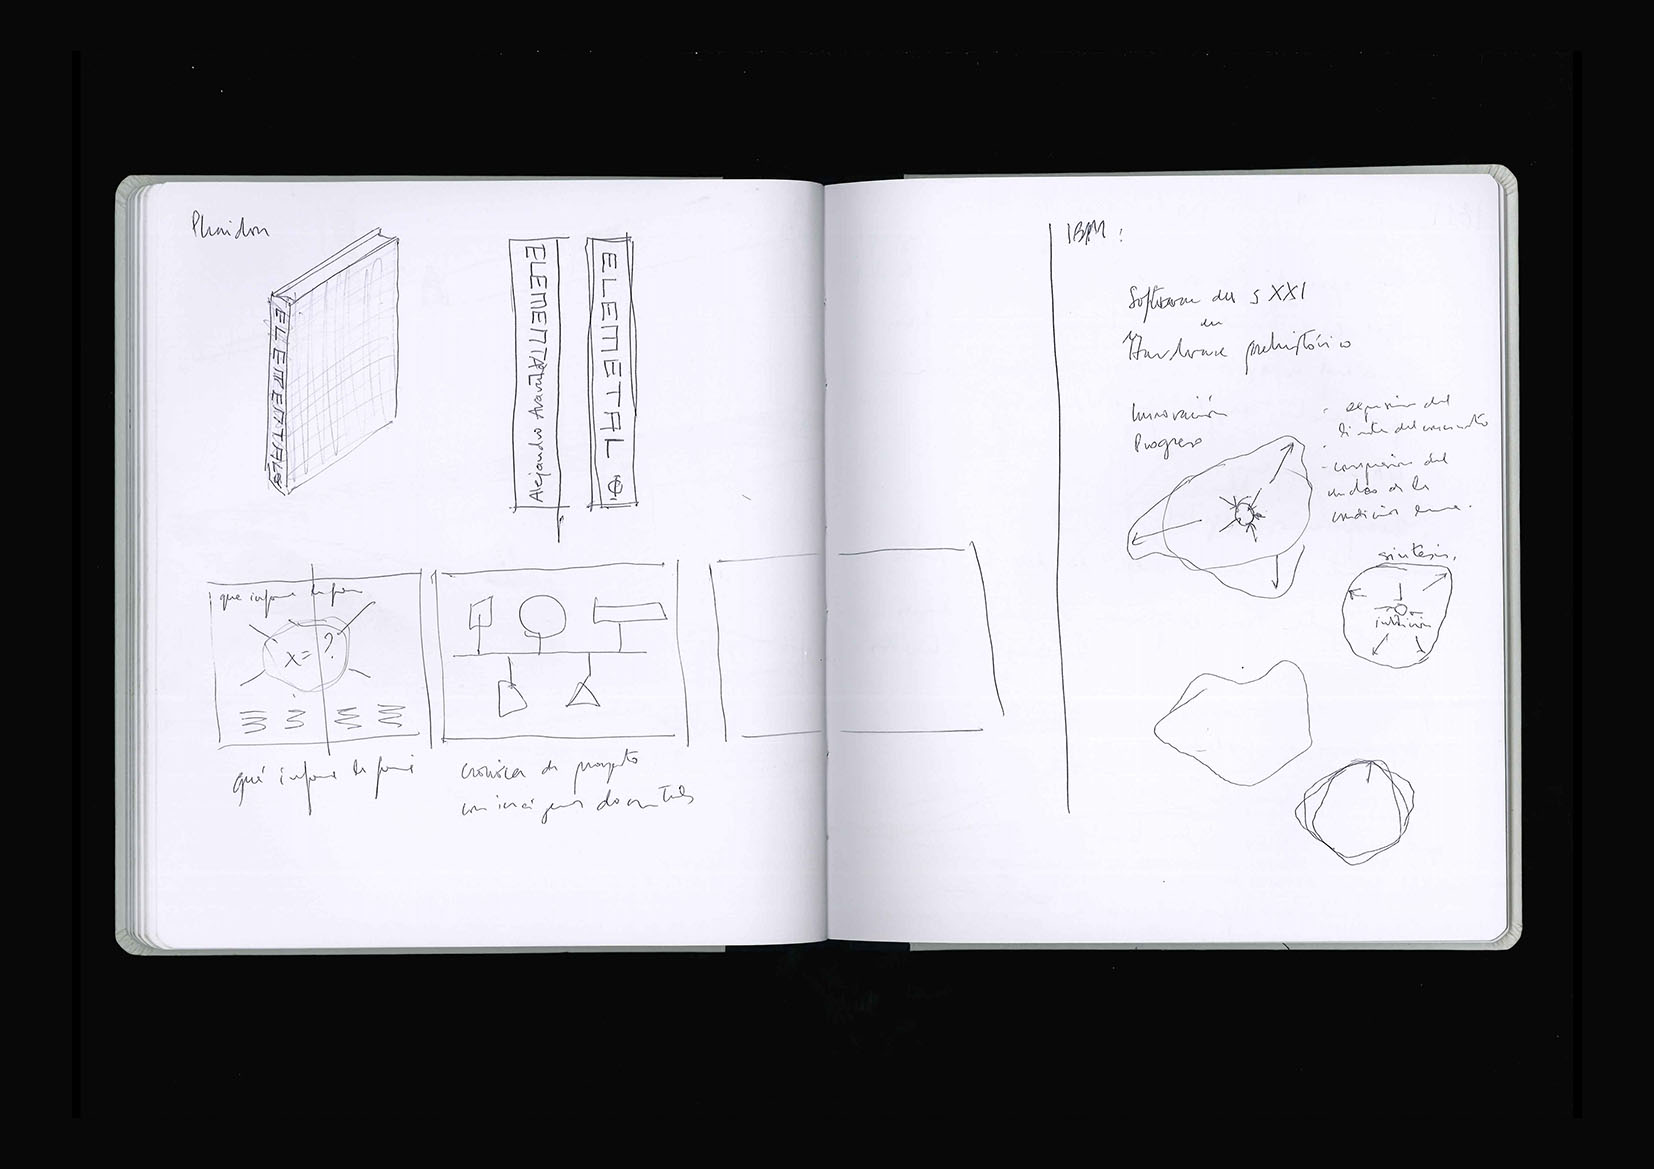 Phaidon
ELEMENTAL
ELEMENTAL
Alejandro Aravena
ELEMETAL
que informa la forma
x = ?
qué informa la forma
crónica de proyecto
con imágenes
IBM:
Software del s XXI
en
Hardware prehistórico
Innovación
Progreso
- expansión del
límite del conocimiento
- compresión del
condición
síntesis.
intuición